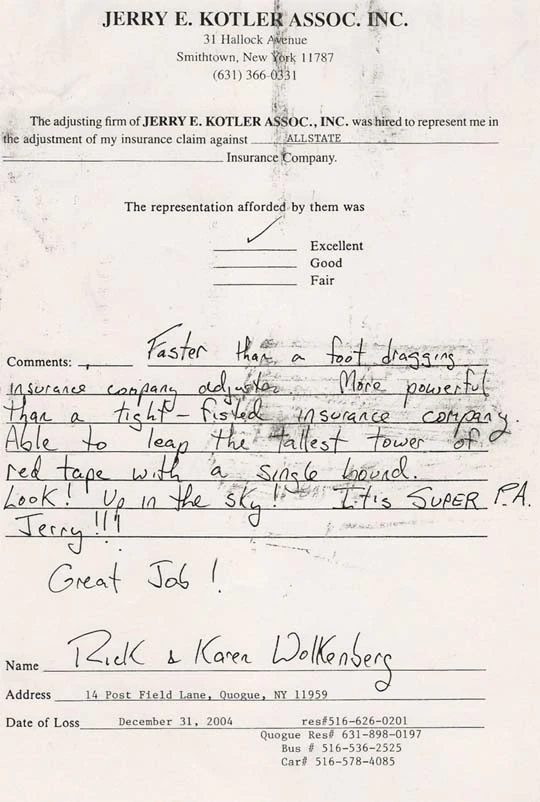 JERRY E. KOTLER ASSOC. INC.
31 Hallock Avenue
Smithtown, New York 11787
(631) 366-0331
The adjusting firm of JERRY E. KOTLER ASSOC., INC. was hired to represent me in
the adjustment of my insurance claim against ALLSTATE
Insurance Company.
The representation afforded by them was
✓ Excellent
Good
Fair
Comments: Faster than a foot dragging
insurance company adjuster. More powerful
than a tight-fisted insurance company.
Able to leap the tallest tower of
red tape with a single bound.
Look! Up in the sky! It's SUPER P.A.
Jerry!!!
Great Job!
Name Rick & Karen Wolkenberg
Address 14 Post Field Lane, Quogue, NY 11959
Date of Loss December 31, 2004 res#516-626-0201
Quogue Res# 631-898-0197
Bus # 516-536-2525
Car# 516-578-4085